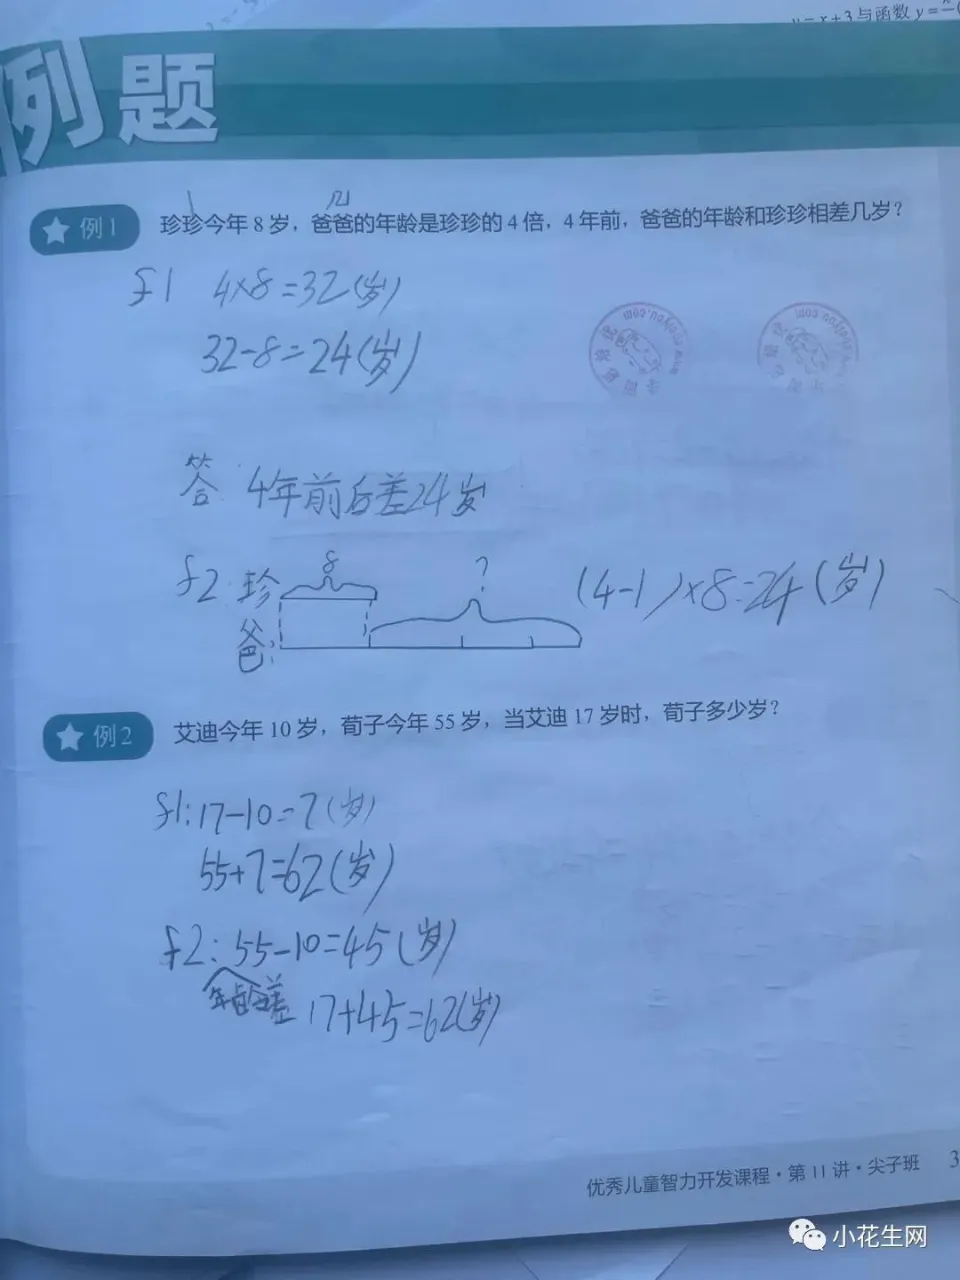 y=x+3与函数y=
例题
例1 珍珍今年8岁，爸爸的年龄是珍珍的4倍，4年前，爸爸的年龄和珍珍相差几岁？
f1 4×8=32(岁)
32-8=24(岁)
答:4年前后差24岁
f2:珍 8 ? (4-1)×8=24(岁)
爸:
例2 艾迪今年10岁，荀子今年55岁，当艾迪17岁时，荀子多少岁？
f1:17-10=7(岁)
55+7=62(岁)
f2:55-10=45(岁)
年龄差 17+45=62(岁)
优秀儿童智力开发课程·第11讲·尖子班 3
小花生网